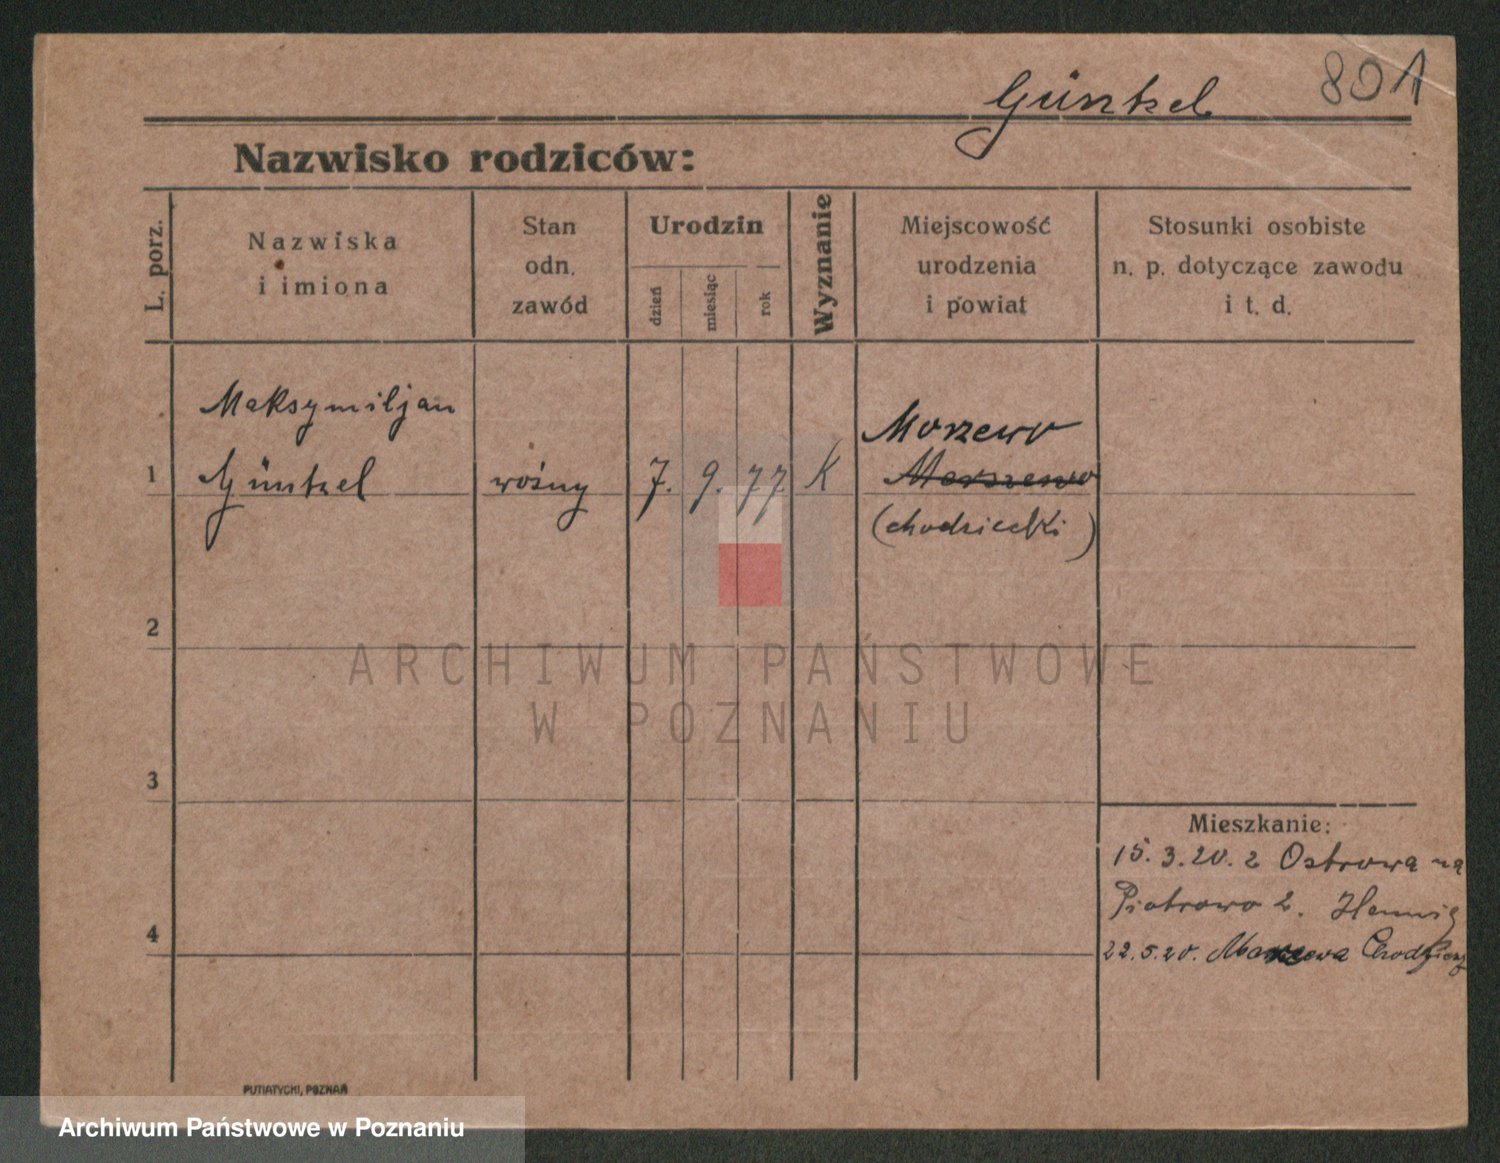 Güntzel 801
Nazwisko rodziców:
L. porz.
Nazwiska
i imiona
Stan
odn.
zawód
Urodzin
dzień
miesiąc
rok
Wyznanie
Miejscowość
urodzenia
i powiat
Stosunki osobiste
n. p. dotyczące zawodu
i t. d.
1
Maksymiljan
Güntzel
woźny
7. 9. 77
K
Morzewo
Marszewo
(chodzieski)
2
3
4
Mieszkanie:
15.3.20. z Ostrowa na
Piotrowo 2. Hennig
22.5.20. Morzewa Chodzież
PUTIATYCKI, POZNAŃ
ARCHIWUM PAŃSTWOWE
W POZNANIU
Archiwum Państwowe w Poznaniu